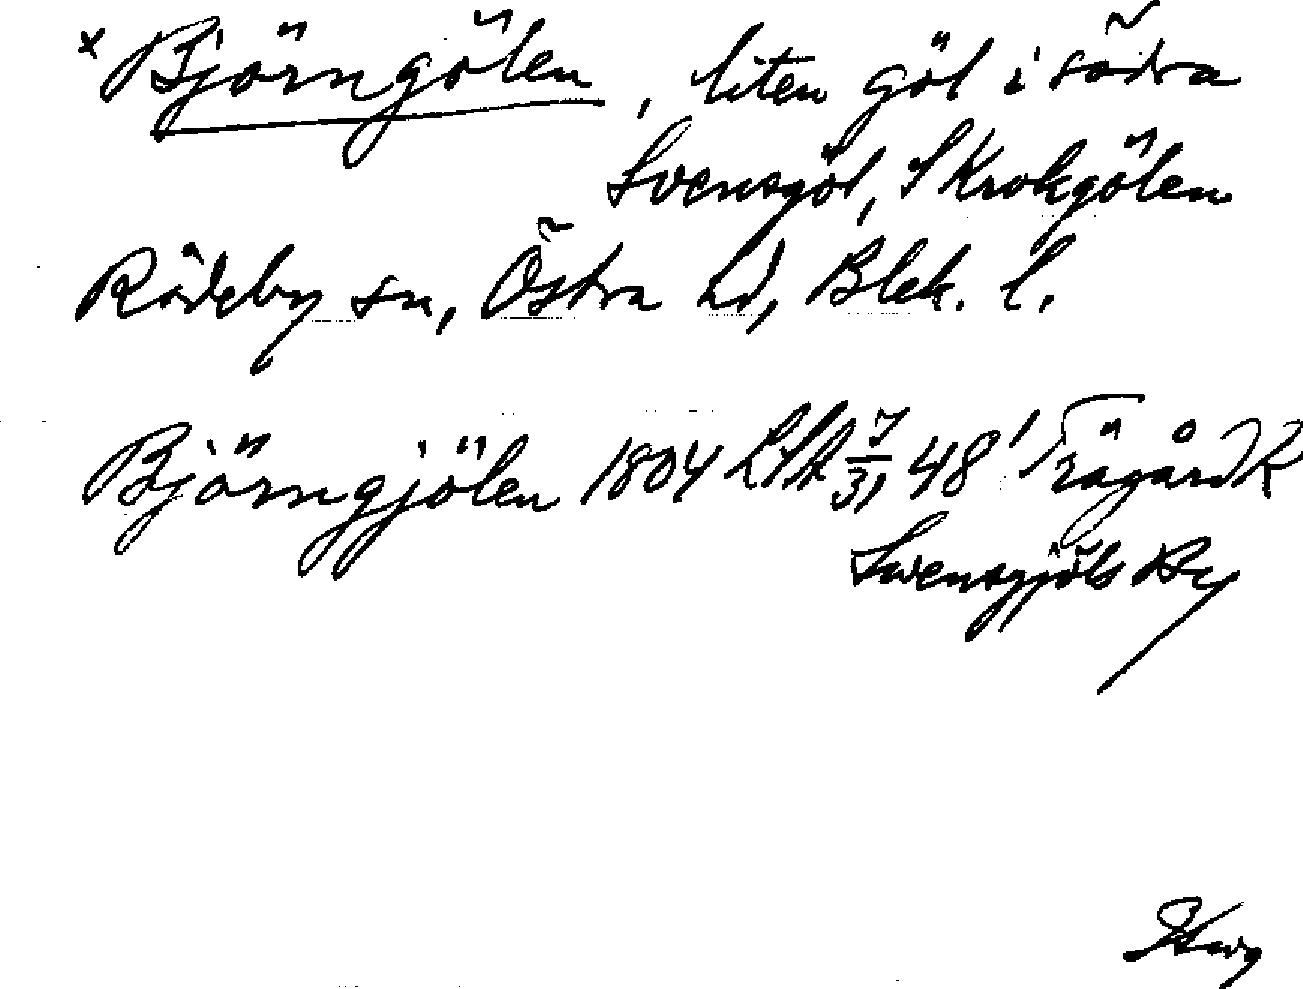 x Björngölen, liten göl i södra
Svensgöl, S Krokgölen
Rödeby sn, Östra hd, Blek. l.
Björngjölen 1804 LSA 7/31, 48 Trägård K
Swensgjöls By